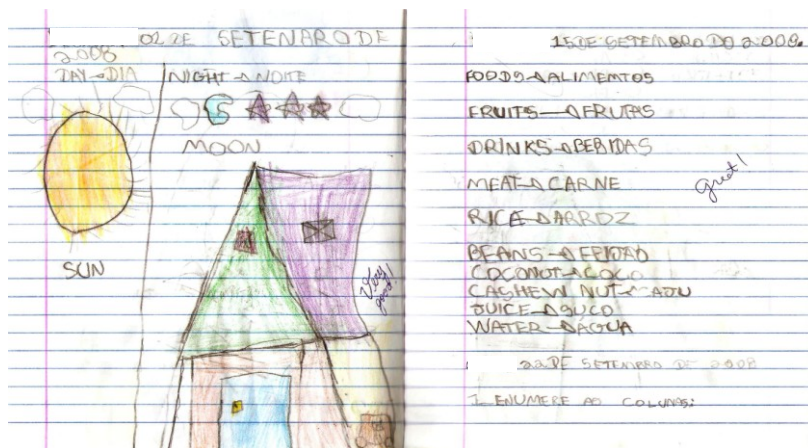 02 DE SETENARODE
2008
DAY→DIA
NIGHT→NOITE
MOON
SUN
Very good!
15 DE SETEMBRO DO 2008.
FOODS→ALIMEMTOS
FRUITS→FRUTAS
DRINKS→BEBIDAS
MEAT→CARNE
great!
RICA→ARROZ
BEANS→FEIJAO
COCONUT→COCO
CASHEW NUT→CAJU
JUICE→SUCO
WATER→AGUA
22 DE SETEMBRO DE 2008
1 ENUMERE AO COLUNAS: